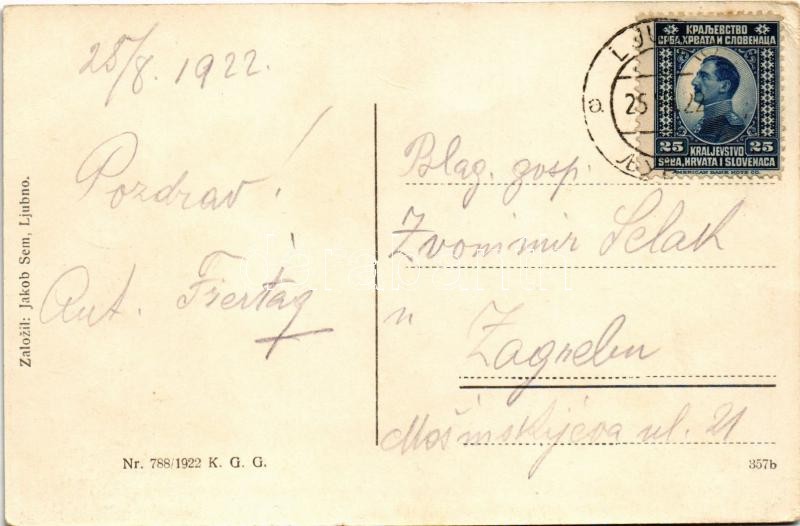 28/8. 1922.
Pozdrav!
Ant. Freitag
Založil: Jakob Sem, Ljubno.
Nr. 788/1922 K. G. G.
КРАЉЕВСТВО
СРБА, ХРВАТА И СЛОВЕНАЦА
25 25
KRALJEVSTVO
SRBA, HRVATA I SLOVENACA
AMERICAN BANK NOTE CO.
a
Blag. gosp.
Zvonimir Selak
u
Zagrebu
ul. 21
357b